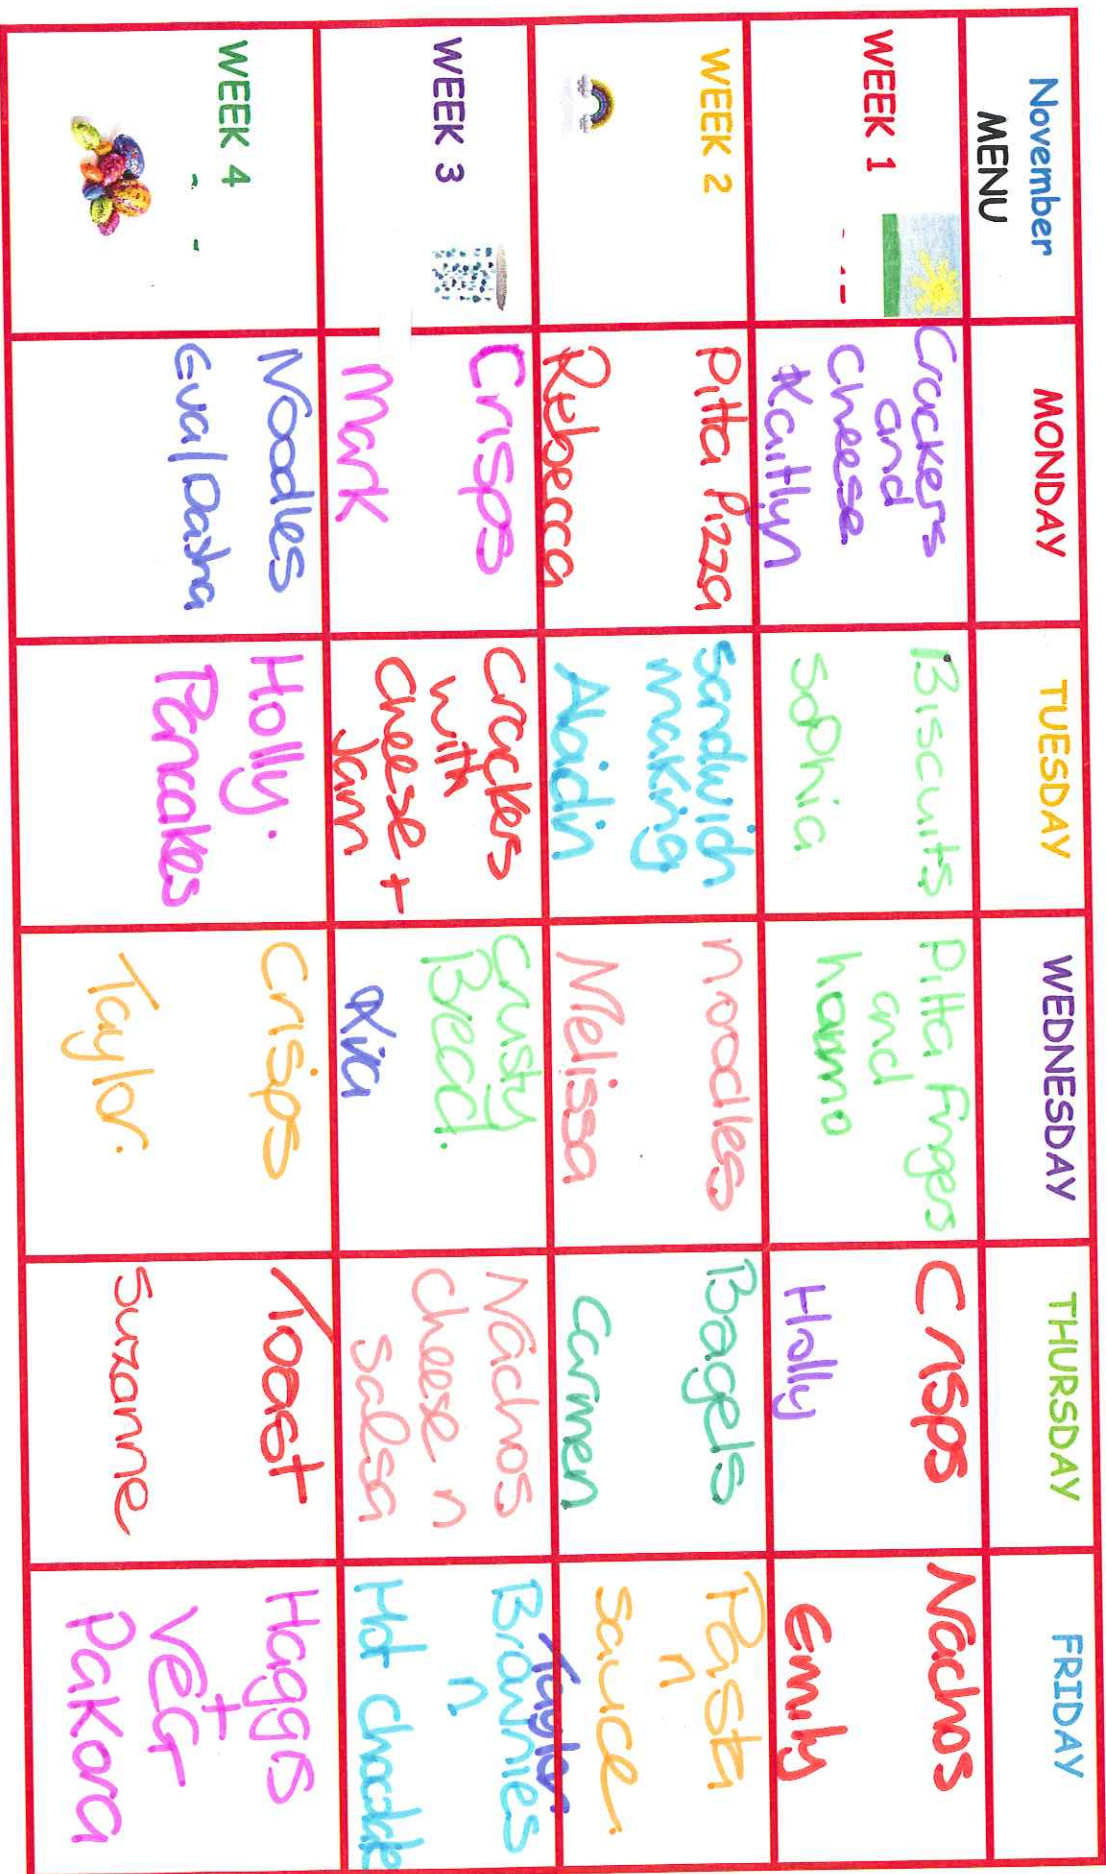 November
MENU
MONDAY
TUESDAY
WEDNESDAY
THURSDAY
FRIDAY
WEEK 1
Crackers
and
Cheese
Kaitlyn
Biscuits
Sophia
Pitta Fingers
and
hommo
Crisps
Holly
Nachos
Emily
WEEK 2
Pitta Pizza
Rebecca
Sandwich
making
Alaidin
noodles
Melissa
Bagels
Carmen
Pasta
n
sauce
WEEK 3
Crisps
Mark
Crackers
with
Cheese +
Jam
Crusty
Bread.
Kira
Nachos
Cheese n
Salsa
Taylor
Brownies
n
Hot Chocolate
WEEK 4
Noodles
Eva/Dasha
Holly.
Pancakes
Crisps
Taylor.
Toast
Suzanne
Haggis
+
VEG
Pakora